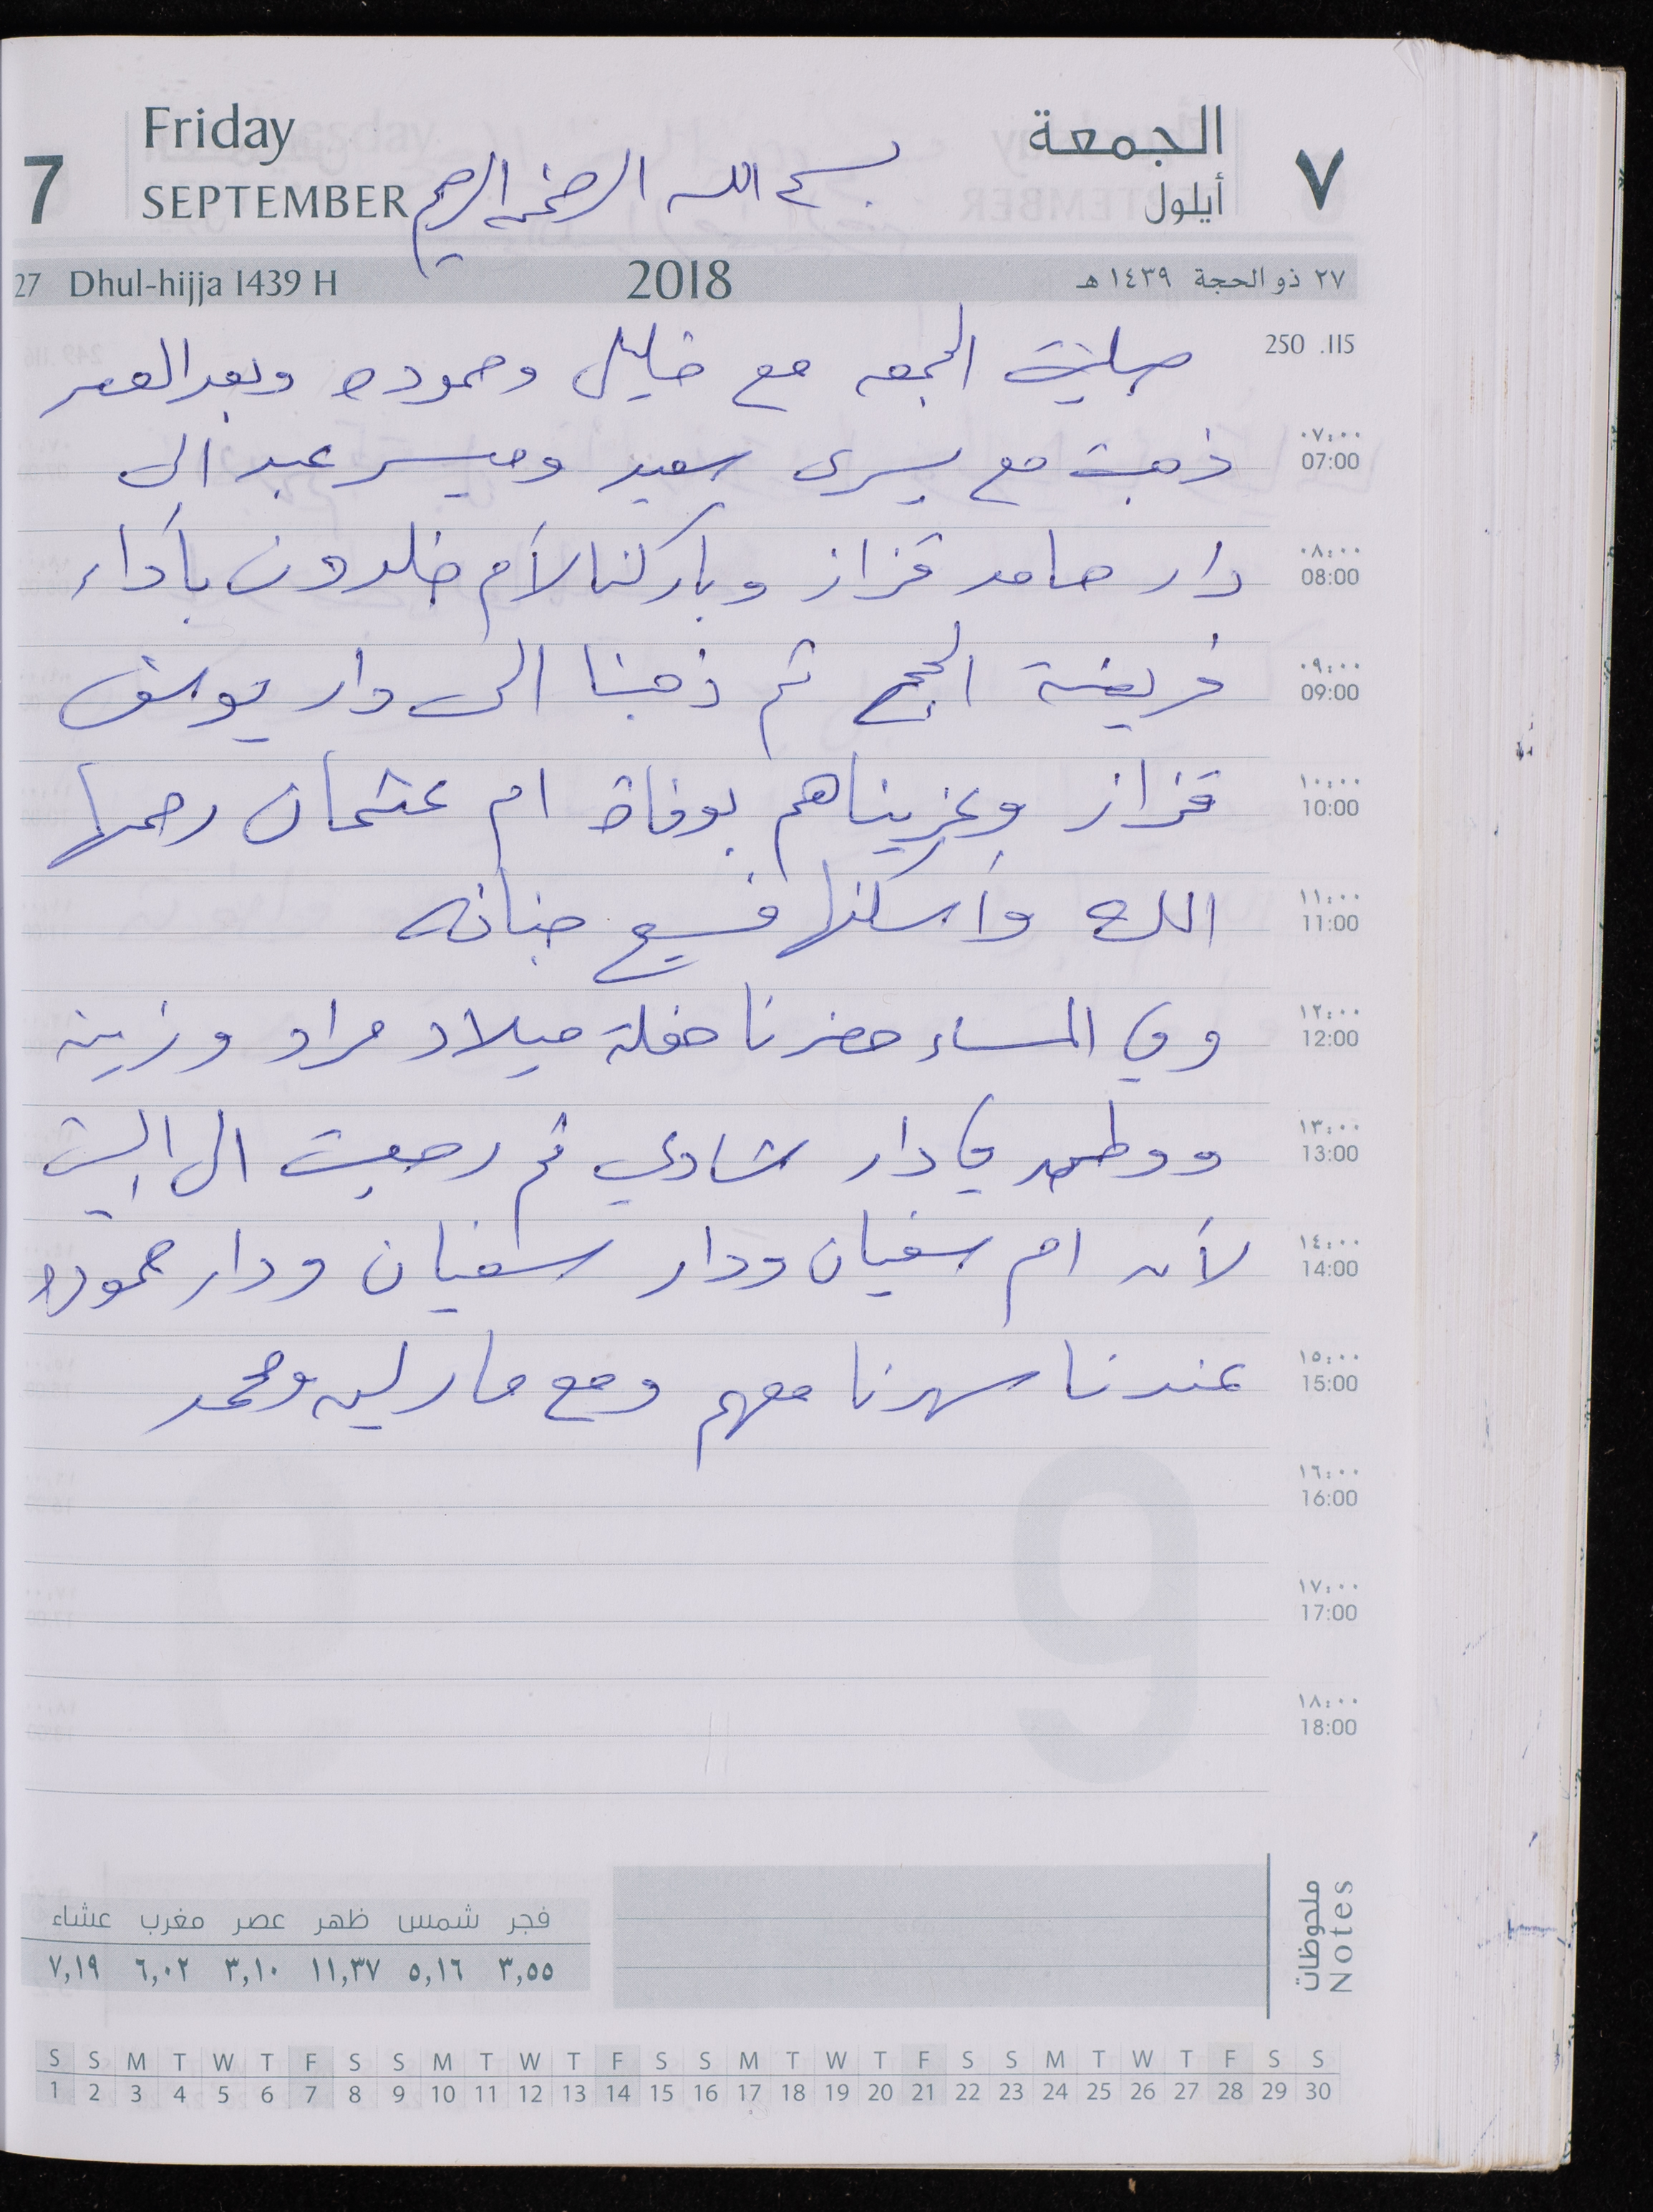 Friday الجمعة
7 SEPTEMBER بسم الله الرحمن الرحيم أيلول ٧
27 Dhul-hijja 1439 H 2018 ٢٧ ذو الحجة ١٤٣٩ هـ
250 .115
صليت الجمعه مع خليل وحموده وبعد العصر
٠٧:٠٠
07:00
ذهبت مع يسرى سعيد وميسر عبد الى
٠٨:٠٠
08:00
دار حامد قزاز وباركنا لأم خلدون بأداء
٠٩:٠٠
09:00
فريضة الحج ثم ذهبنا الى دار يوسف
١٠:٠٠
10:00
قزاز وعزيناهم بوفاة ام عثمان رحمها
١١:٠٠
11:00
الله وأسكنها فسيح جنانه
١٢:٠٠
12:00
وفي المساء حضرنا حفلة ميلاد مراد وزينه
١٣:٠٠
13:00
في دار شادي ثم رجعت الى البيت
١٤:٠٠
14:00
لأن ام سفيان ودار سفيان ودار حموده
١٥:٠٠
15:00
عندنا سهرنا معهم ومع مارلين ومحمد
١٦:٠٠
16:00
١٧:٠٠
17:00
١٨:٠٠
18:00
ملحوظات
Notes
فجر شمس ظهر عصر مغرب عشاء
٣,٥٥ ٥,١٦ ١١,٣٧ ٣,١٠ ٦,٠٢ ٧,١٩
S S M T W T F S S M T W T F S S M T W T F S S M T W T F S S
1 2 3 4 5 6 7 8 9 10 11 12 13 14 15 16 17 18 19 20 21 22 23 24 25 26 27 28 29 30